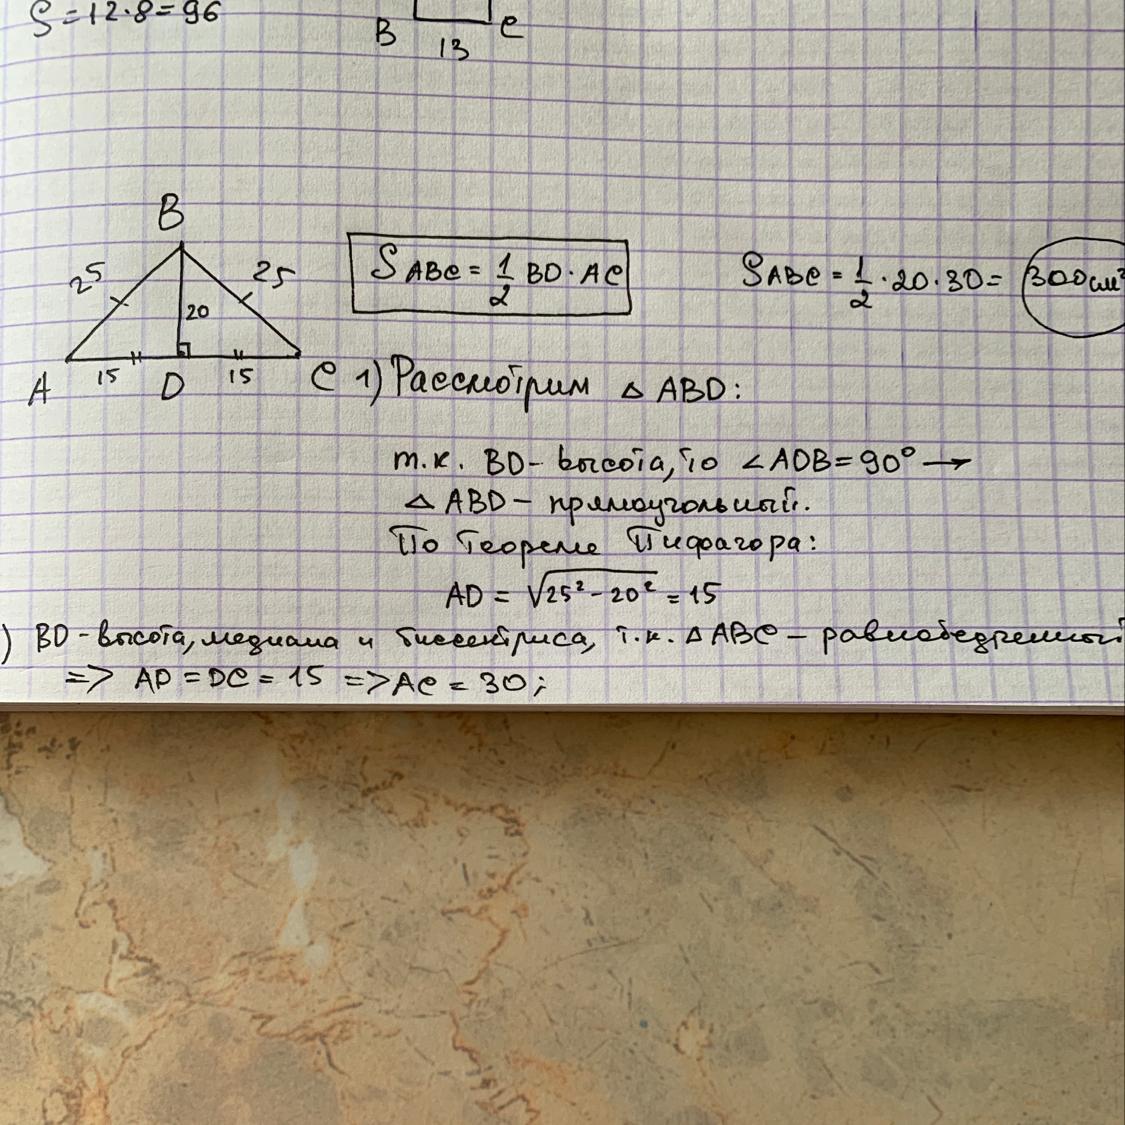 S=12·8=96
B C
13
B
25 25
20
15 15
A D C
S ABC = 1/2 BD · AC
S ABC = 1/2 · 20 · 30 = 300 см²
1) Рассмотрим △ ABD:
т.к. BD - высота, то ∠ADB=90° →
△ ABD - прямоугольный.
По Теореме Пифагора:
AD = √25² - 20² = 15
) BD - высота, медиана и биссектриса, т.к. △ ABC - равнобедренный
=> AD = DC = 15 => AC = 30;